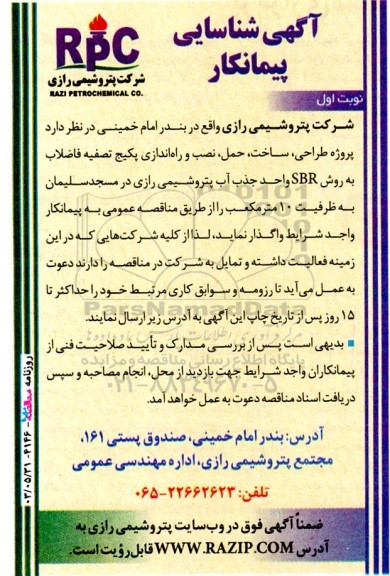 آگهی شناسایی
پیمانکار
RPC
شرکت پتروشیمی رازی
RAZI PETROCHEMICAL CO.
نوبت اول
شرکت پتروشیمی رازی واقع در بندر امام خمینی در نظر دارد
پروژه طراحی، ساخت، حمل، نصب و راه‌اندازی پکیج تصفیه فاضلاب
به روش SBR واحد جذب آب پتروشیمی رازی در مسجدسلیمان
به ظرفیت ۱۰ مترمکعب را از طریق مناقصه عمومی به پیمانکار
واجد شرایط واگذار نماید، لذا از کلیه شرکت‌هایی که در این
زمینه فعالیت داشته و تمایل به شرکت در مناقصه را دارند دعوت
به عمل می‌آید تا رزومه و سوابق کاری مرتبط خود را حداکثر تا
۱۵ روز پس از تاریخ چاپ این آگهی به آدرس زیر ارسال نمایند.
بدیهی است پس از بررسی مدارک و تأیید صلاحیت فنی از
پیمانکاران واجد شرایط جهت بازدید از محل، انجام مصاحبه و سپس
دریافت اسناد مناقصه دعوت به عمل خواهد آمد.
آدرس: بندر امام خمینی، صندوق پستی ۱۶۱،
مجتمع پتروشیمی رازی، اداره مهندسی عمومی
تلفن: ۲۲۶۶۲۶۲۳-۰۶۵
ضمناً آگهی فوق در وب‌سایت پتروشیمی رازی به
آدرس WWW.RAZIP.COM قابل رؤیت است.
روزنامه مناقصه ۴۱۴۶ - ۰۳/۰۵/۳۱
ParsNamadData
پایگاه اطلاع رسانی مناقصه و مزایده
۰۲۱-۸۸۳۴۹۶۷۰-۵